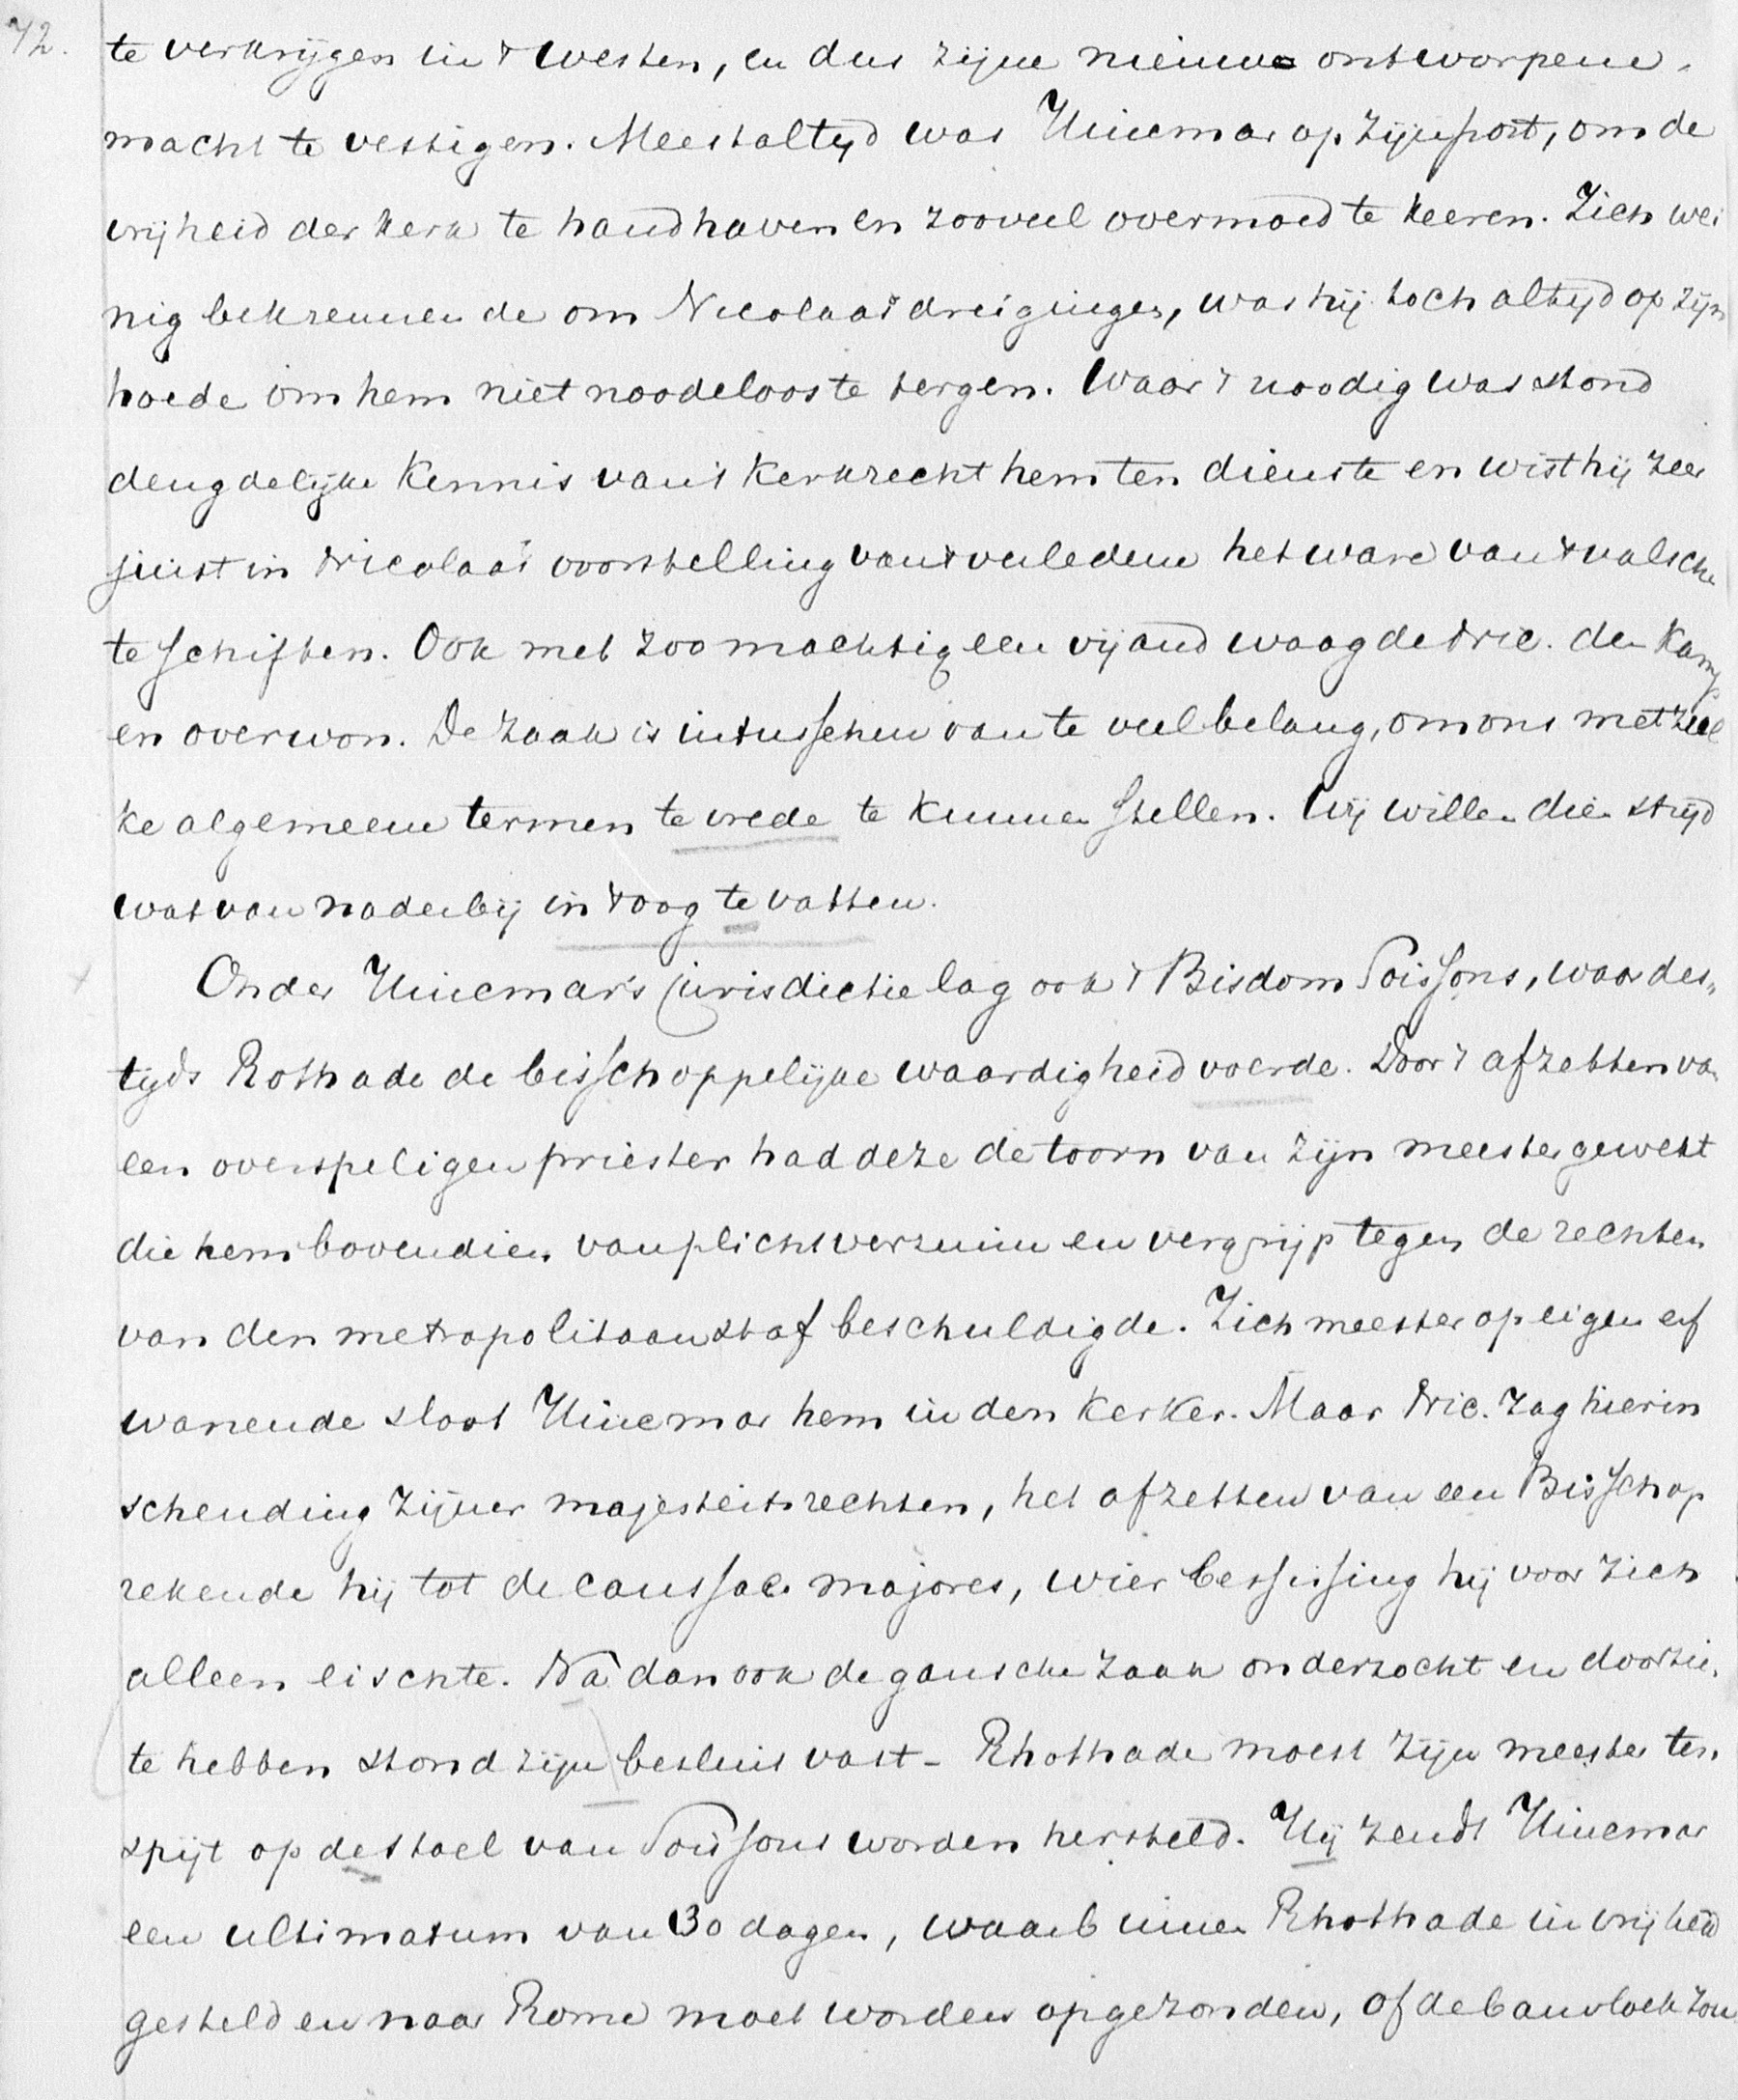 72.
te verkrijgen in 't westen, en dus zijne nieuwe ontworpene
macht te vestigen. Meestaltijd was Hincmar op zijn post, om de
vrijheid der kerk te handhaven en zooveel overmoed te keeren. Zich wei
nig bekreunende om Nicolaas' dreigingen, was hij toch altijd op zijn
hoede om hem niet noodeloos te tergen. Waar 't noodig was stond
deugdelijke kennis van 't kerkrecht hem ten dienste en wist hij zeer
juist in Nicolaas' voorstelling van 't verledene het ware van 't valsche
te schiften. Ook met zoo machtig een vijand waagde Nic. den kamp
en overwon. De zaak is intusschen van te veel belang, om ons met zul
ke algemeene termen te vrede te kunnen stellen. Wij willen dien strijd
wat van naderbij in 't oog te vatten.
Onder Hincmar's jurisdictie lag ook 't Bisdom Soissons, waar des„
tijds Rothade de bisschoppelijke waardigheid voerde. Door 't afzetten van
een overspeligen priester had deze de toorn van zijn meester gewekt
die hem bovendien van plichtverzuim en vergrijp tegen de rechten
van den metropolitaanstaf beschuldigde. Zich meester op eigen erf
wanende sloot Hincmar hem in den kerker. Maar Nic. zag hierin
schending zijner majesteitsrechten, het afzetten van een Bisschop
rekende hij tot de caussae majores, wier beslissing hij voor zich
alleen eischte. Na dan ook de gansche zaak onderzocht en doorzien
te hebben stond zijn besluit vast - Rhothade moest zijn meester ten
spijt op de stoel van Soissons worden hersteld. Hij zendt Hincmar
een ultimatum van 30 dagen, waarbinnen Rhothade in vrijheid
gesteld en naar Rome moet worden opgezonden, of de banvloek zou